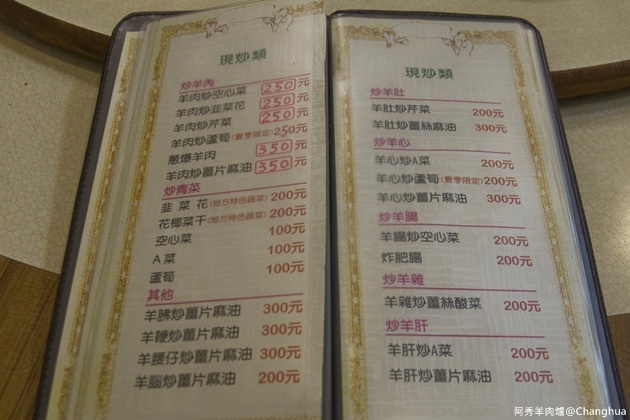 現炒類
炒羊肉
羊肉炒空心菜 250元
羊肉炒韭菜花 250元
羊肉炒芹菜 250元
羊肉炒蘆筍(夏季限定)250元
蔥爆羊肉 350元
羊肉炒薑片麻油 350元
炒青菜
韭菜花(地方特色蔬菜)200元
花椰菜干(地方特色蔬菜)200元
空心菜 100元
A菜 100元
蘆筍 100元
其他
羊肺炒薑片麻油 300元
羊鞭炒薑片麻油 300元
羊腰仔炒薑片麻油 300元
羊腦炒薑片麻油 200元
現炒類
炒羊肚
羊肚炒芹菜 200元
羊肚炒薑絲麻油 300元
炒羊心
羊心炒A菜 200元
羊心炒蘆筍(夏季限定)200元
羊心炒薑片麻油 300元
炒羊腸
羊腸炒空心菜 200元
炸肥腸 200元
炒羊雜
羊雜炒薑絲酸菜 200元
炒羊肝
羊肝炒A菜 200元
羊肝炒薑片麻油 200元
阿秀羊肉爐@Changhua